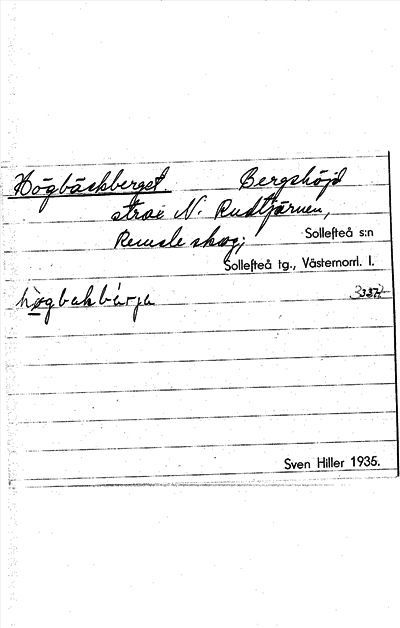 Högbäckberget. Bergshöjd
strax N. Rudtjärnen,
Remsle skog; Sollefteå s:n
Sollefteå tg., Västernorrl. l.
hö̀gbakbárja
Sven Hiller 1935.